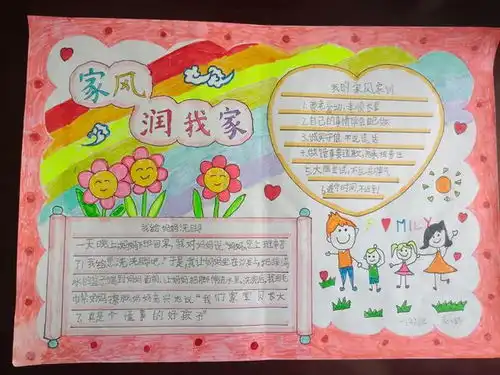 家风
润我家
我的家风家训
1.要爱劳动,孝顺长辈
2.自己的事情学会自己做
3.诚实守信,不说谎话
4.做错事要道歉,
5.大胆尝试,不
6.遵守时间,不迟到
FMILY
我给妈妈洗脚
一天晚上,妈妈下班回家,我对妈妈说:"妈妈,您上班辛苦
了!我给您洗洗脚吧。"于是,我让妈妈坐在沙发上,
水的盆子端到妈妈面前,让妈妈把脚伸进水里,洗完后,我用毛
巾帮妈妈擦脚,妈妈高兴地说:"我们家宝贝长大
了,真是个懂事的好孩子"